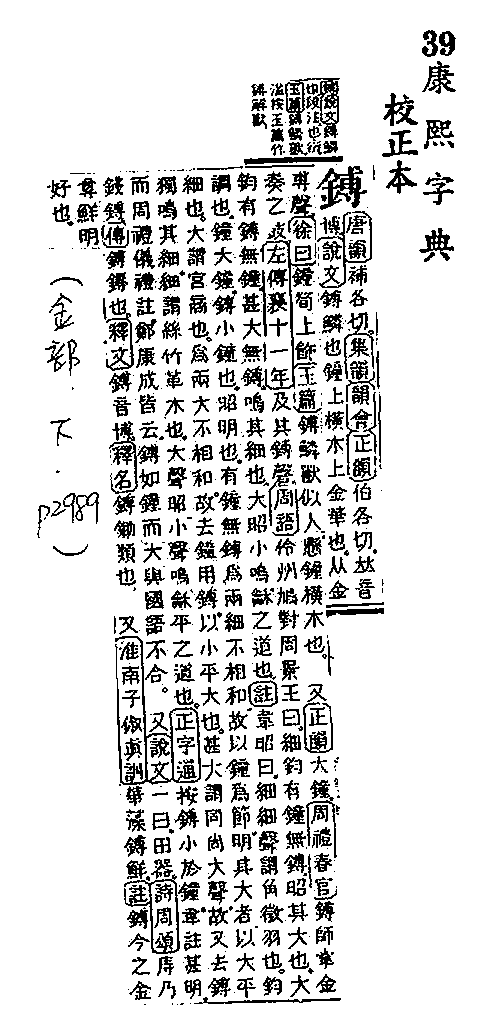 39 康熙字典
校正本
鎛
唐韻補各切集韻韻會正韻伯各切𠀤音
博說文鎛鱗也鐘上橫木上金華也从金
尃聲徐曰鐘筍上飾玉篇鎛鱗獸似人懸鐘橫木也 又正韻大鐘周禮春官鎛師掌金
奏之鼓左傳襄十一年及其鎛磬周語伶州鳩對周景王曰細鈞有鐘無鎛昭其大也大
鈞有鎛無鐘甚大無鎛鳴其細也大昭小鳴龢之道也註韋昭曰細細聲謂角徵羽也鈞
調也鐘大鐘鎛小鐘也昭明也有鐘無鎛爲兩細不相和故以鐘爲節明其大者以大平
細也大謂宮商也爲兩大不相和故去鐘用鎛以小平大也甚大謂同尚大聲故又去鎛
獨鳴其細細謂絲竹革木也大聲昭小聲鳴龢平之道也正字通按鎛小於鐘韋註甚明
而周禮儀禮註鄭康成皆云鎛如鐘而大與國語不合 又說文一曰田器詩周頌庤乃
錢鎛傳鎛鎒也釋文鎛音博釋名鎛鋤類也 又淮南子俶眞訓華藻鎛鮮註鎛今之金
尊鮮明
好也
(金部.下.p2989)